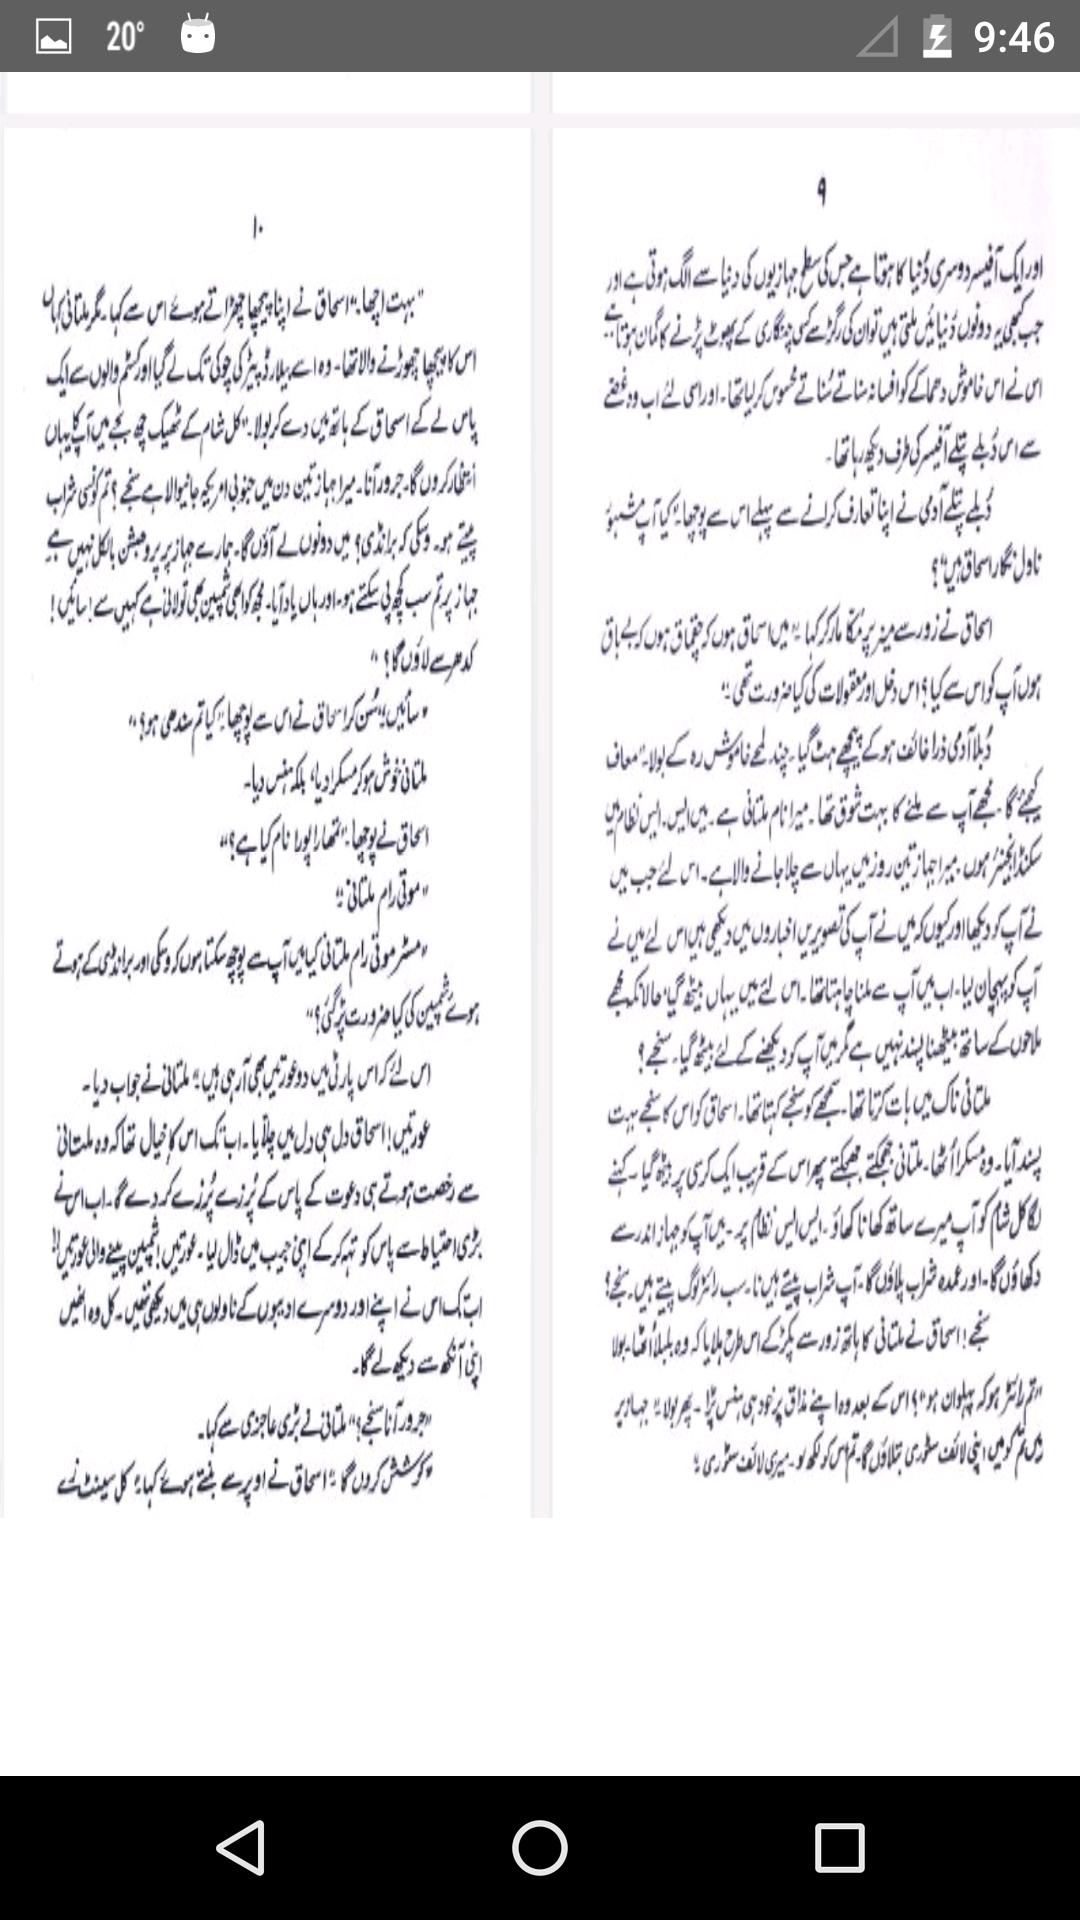 20°
9:46
۹
اور ایک آفیسر دوسری دُنیا کا ہوتا ہے جس کی سطح جہازیوں کی دنیا سے الگ ہوتی ہے اور
جب کبھی یہ دونوں دُنیائیں ملتی ہیں تو ان کی رگڑ سے کسی چنگاری کے پھوٹ پڑنے کا گمان ہوتا ہے
اس نے اس خاموش دھماکے کو افسانہ سناتے سُناتے محسوس کر لیا تھا۔ اور اسی لئے اب وہ غصّے
سے اس دُبلے پتلے آفیسر کی طرف دیکھ رہا تھا۔
دُبلے پتلے آدمی نے اپنا تعارف کرانے سے پہلے اس سے پوچھا "کیا آپ مشہور
ناول نگار اسحاق ہیں"؟
اسحاق نے زور سے میز پر مُکّا مار کر کہا "میں اسحاق ہوں کہ چقماق ہوں کہ بے باق
ہوں آپ کو اس سے کیا؟ اس دخل اور معقولات کی کیا ضرورت تھی۔"
دُبلا آدمی ذرا خائف ہو کے پیچھے ہٹ گیا۔ چند لمحے خاموش رہ کے بولا۔ "معاف
کیجئے گا۔ مجھے آپ سے ملنے کا بہت شوق تھا۔ میرا نام ملتانی ہے۔ میں ایس۔ ایس نظام میں
سکنڈ انجینئر ہوں۔ میرا جہاز تین روز میں یہاں سے چلا جانے والا ہے۔ اس لئے جب میں
نے آپ کو دیکھا اور کیوں کہ میں نے آپ کی تصویریں اخباروں میں دیکھی ہیں اس لئے میں نے
آپ کو پہچان لیا۔ اب میں آپ سے ملنا چاہتا تھا۔ اس لئے میں یہاں بیٹھ گیا، حالانکہ مجھے
ملاحوں کے ساتھ بیٹھنا پسند نہیں ہے مگر میں آپ کو دیکھنے کے لئے بیٹھ گیا۔ سنجے؟
ملتانی ناک میں بات کرتا تھا۔ سمجھے کو سنجے کہتا تھا۔ اسحاق کو اس کا سنجے بہت
پسند آیا۔ وہ مسکرا اُٹھا۔ ملتانی جھجکتے جھجکتے پھر اس کے قریب ایک کرسی پر بیٹھ گیا۔ کہنے
لگا کل شام کو آپ میرے ساتھ کھانا کھاؤ۔ ایس ایس نظام پر۔ میں آپ کو جہاز اندر سے
دکھاؤں گا۔ اور عمدہ شراب پلاؤں گا۔ آپ شراب پیتے ہیں نا۔ سب رائٹر لوگ پیتے ہیں۔ سنجے؟
سنجے! اسحاق نے ملتانی کا ہاتھ زور سے پکڑ کے اس طرح ہلایا کہ وہ بلبلا اُٹھا۔ بولا
"تم رائٹر ہو کہ پہلوان ہو"؟ اس کے بعد وہ اپنے مذاق پر خود ہی ہنس پڑا۔ پھر بولا "جہاز پر
میں تم کو میں اپنی لائف سٹوری بتلاؤں گا۔ تم اس کو لکھو۔ میری لائف سٹوری۔"
۱۰
"بہت اچھا۔" اسحاق نے اپنا پیچھا چھڑاتے ہوئے اس سے کہا۔ مگر ملتانی کہاں
اس کا پیچھا چھوڑنے والا تھا۔ وہ اسے بیلارڈ پیئر کی چوکی تک لے گیا اور کسٹم والوں سے ایک
پاس لے کے اسحاق کے ہاتھ میں دے کر بولا۔ "کل شام کے ٹھیک چھ بجے میں آپ کا یہاں
انتظار کروں گا۔ جرور آنا۔ میرا جہاز تین دن میں جنوبی امریکہ جانیوالا ہے سنجے؟ تم کونسی شراب
پیتے ہو۔ وسکی کہ برانڈی؟ میں دونوں لے آؤں گا۔ ہمارے جہاز پر پروہبشن بالکل نہیں ہے
جہاز پر تم سب کچھ پی سکتے ہو۔ اور ہاں یاد آیا۔ مجھ کو ابھی شمپین بھی تو لانی ہے کہیں سے! سائیں!
کدھر سے لاؤں گا؟"
"سائیں" سُن کر اسحاق نے اس سے پوچھا "کیا تم سندھی ہو؟"
ملتانی خوش ہو کر مسکرا دیا، بلکہ ہنس دیا۔
اسحاق نے پوچھا۔ "تمھارا پورا نام کیا ہے؟"
"موتی رام ملتانی"
"مسٹر موتی رام ملتانی کیا میں آپ سے پوچھ سکتا ہوں کہ وسکی اور برانڈی کے ہوتے
ہوئے شمپین کی کیا ضرورت پڑ گئی؟"
اس لئے کہ اس پارٹی میں دو عورتیں بھی آ رہی ہیں" ملتانی نے جواب دیا۔
عورتیں! اسحاق دل ہی دل میں چلّایا۔ اب تک اس کا خیال تھا کہ وہ ملتانی
سے رخصت ہوتے ہی دعوت کے پاس کے پُرزے پُرزے کر دے گا۔ اب اس نے
بڑی احتیاط سے پاس کو تہہ کر کے اپنی جیب میں ڈال لیا۔ عورتیں! شمپین پینے والی عورتیں!!
اب تک اس نے اپنے اور دوسرے ادیبوں کے ناولوں ہی میں دیکھی تھیں۔ کل وہ انھیں
اپنی آنکھ سے دیکھ لے گا۔
"جرور آنا سنجے؟" ملتانی نے بڑی عاجزی سے کہا۔
"کوشش کروں گا" اسحاق نے اوپر سے بنتے ہوئے کہا "کل سیمنٹ کے